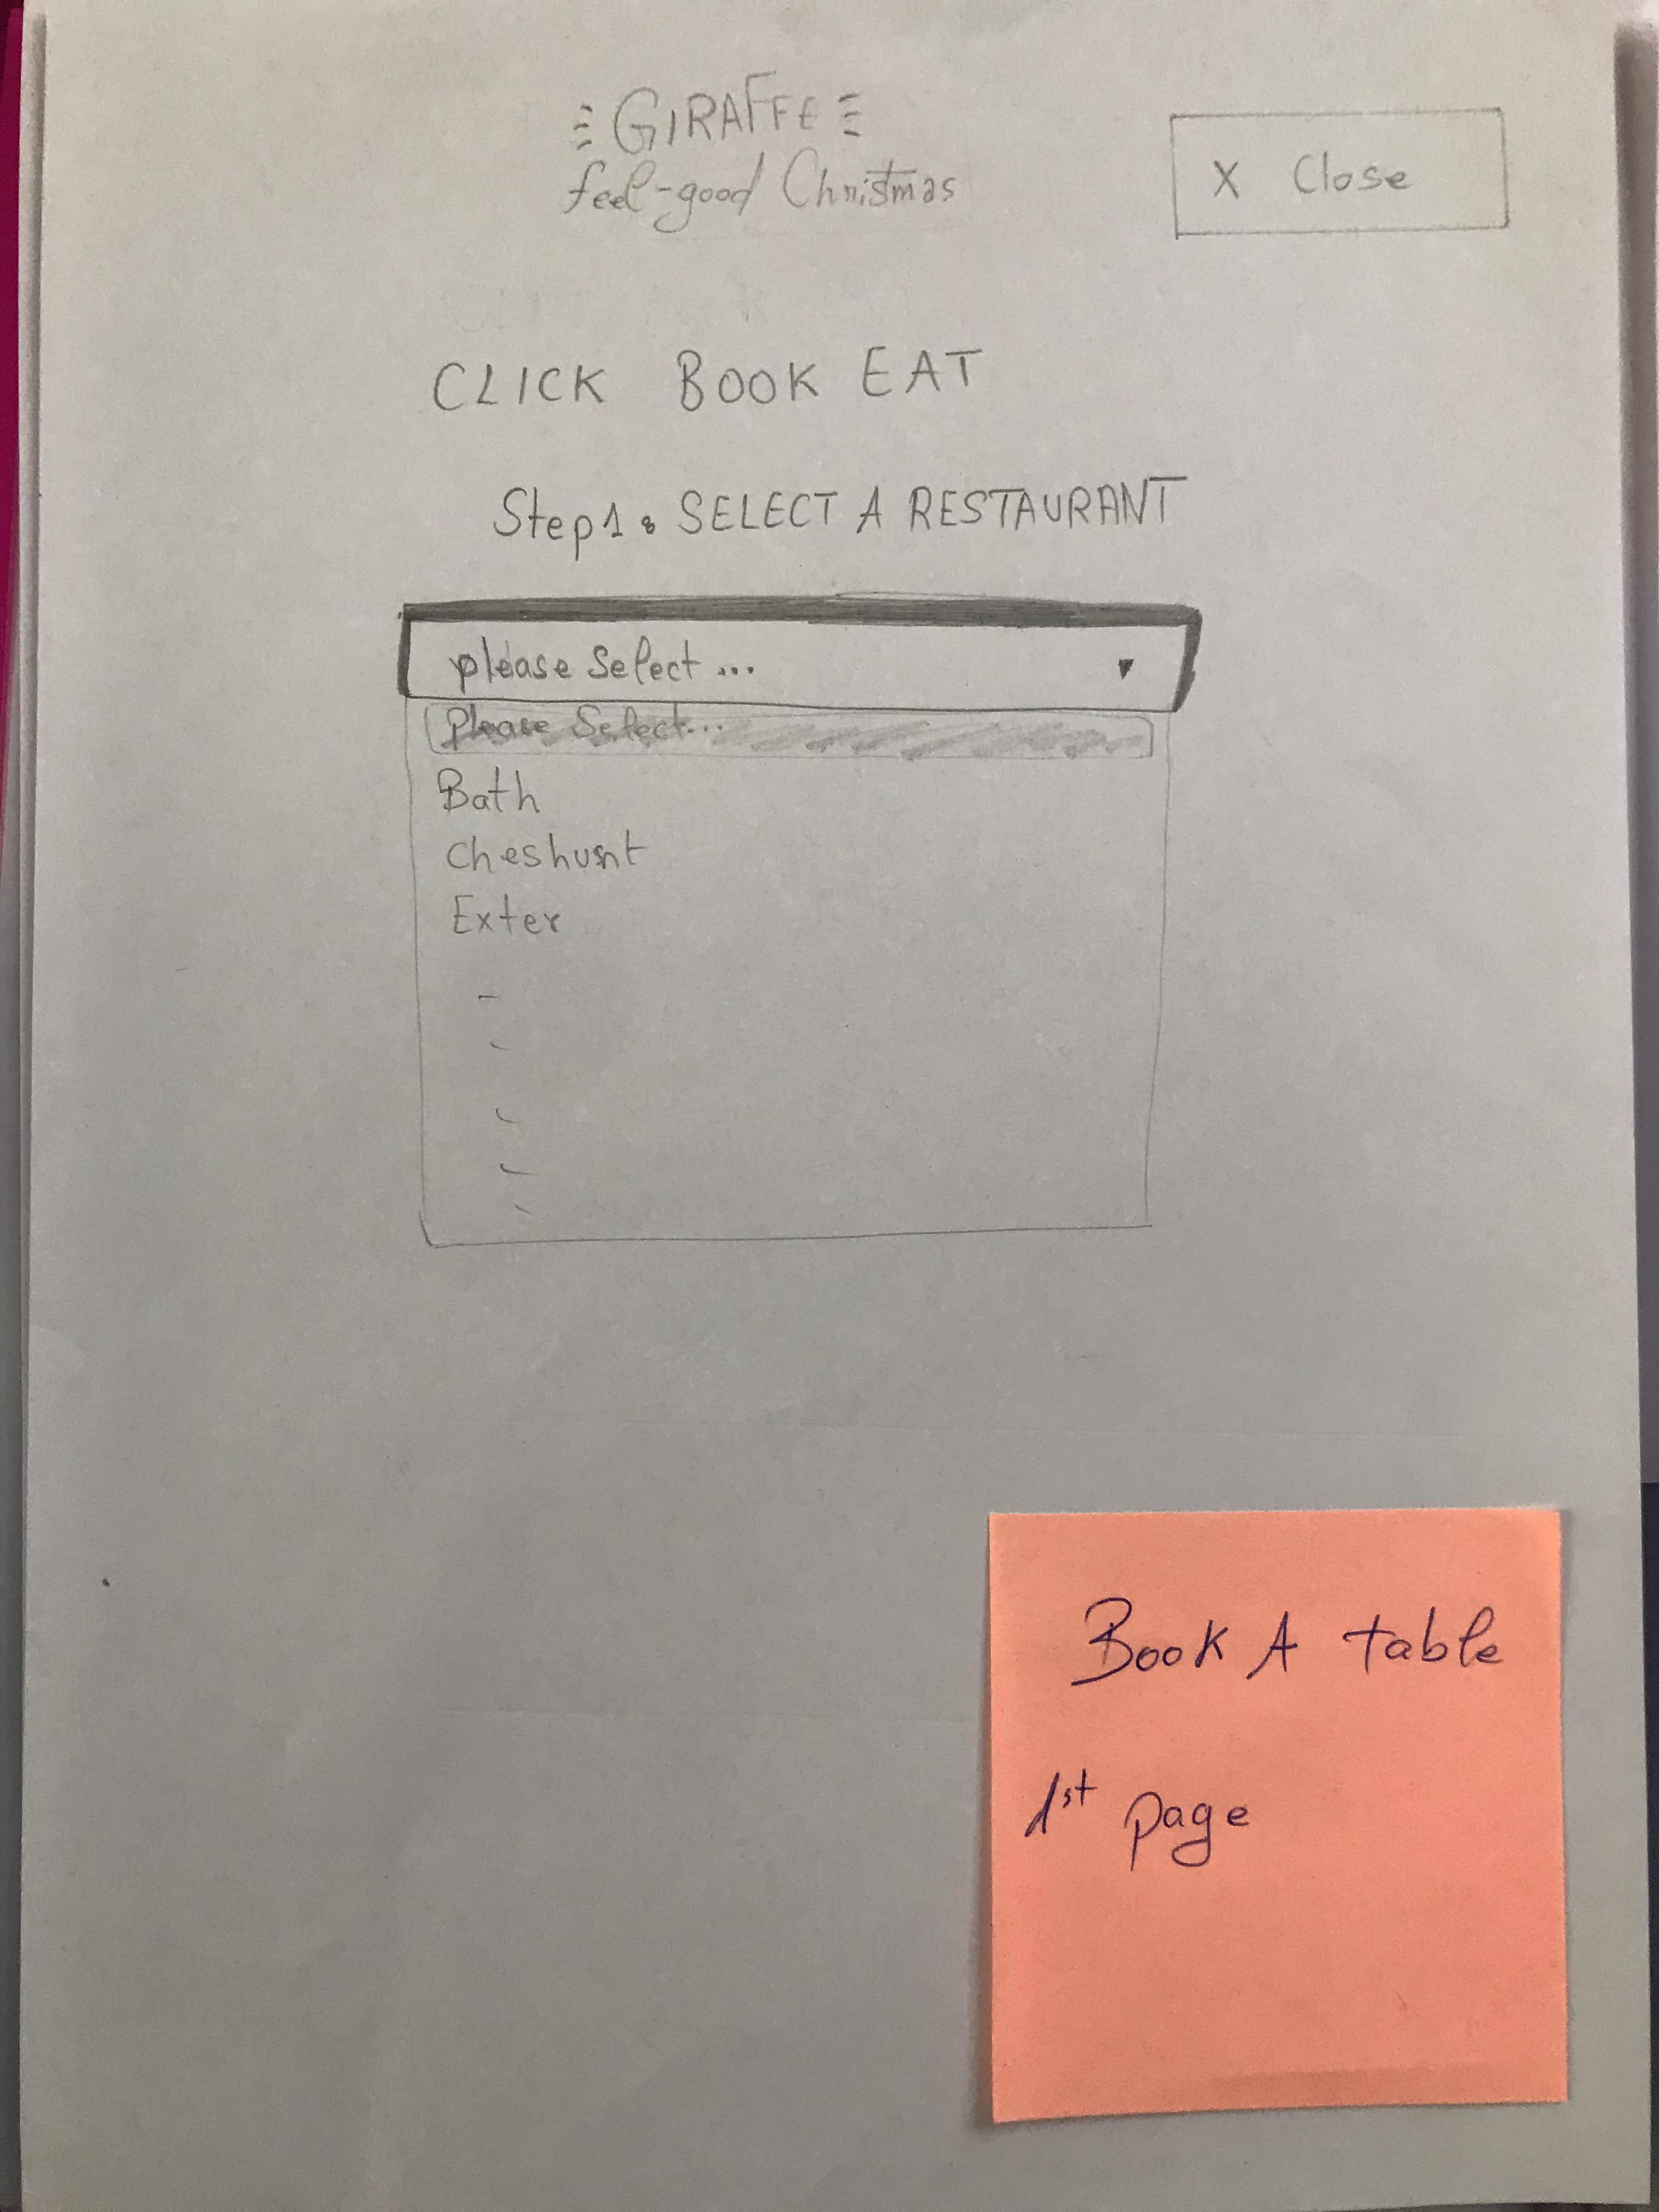 GIRAFFE
feel-good Christmas
X Close
CLICK BOOK EAT
Step1: SELECT A RESTAURANT
please Select ...
Please Select...
Bath
cheshunt
Exter
Book A table
1st page